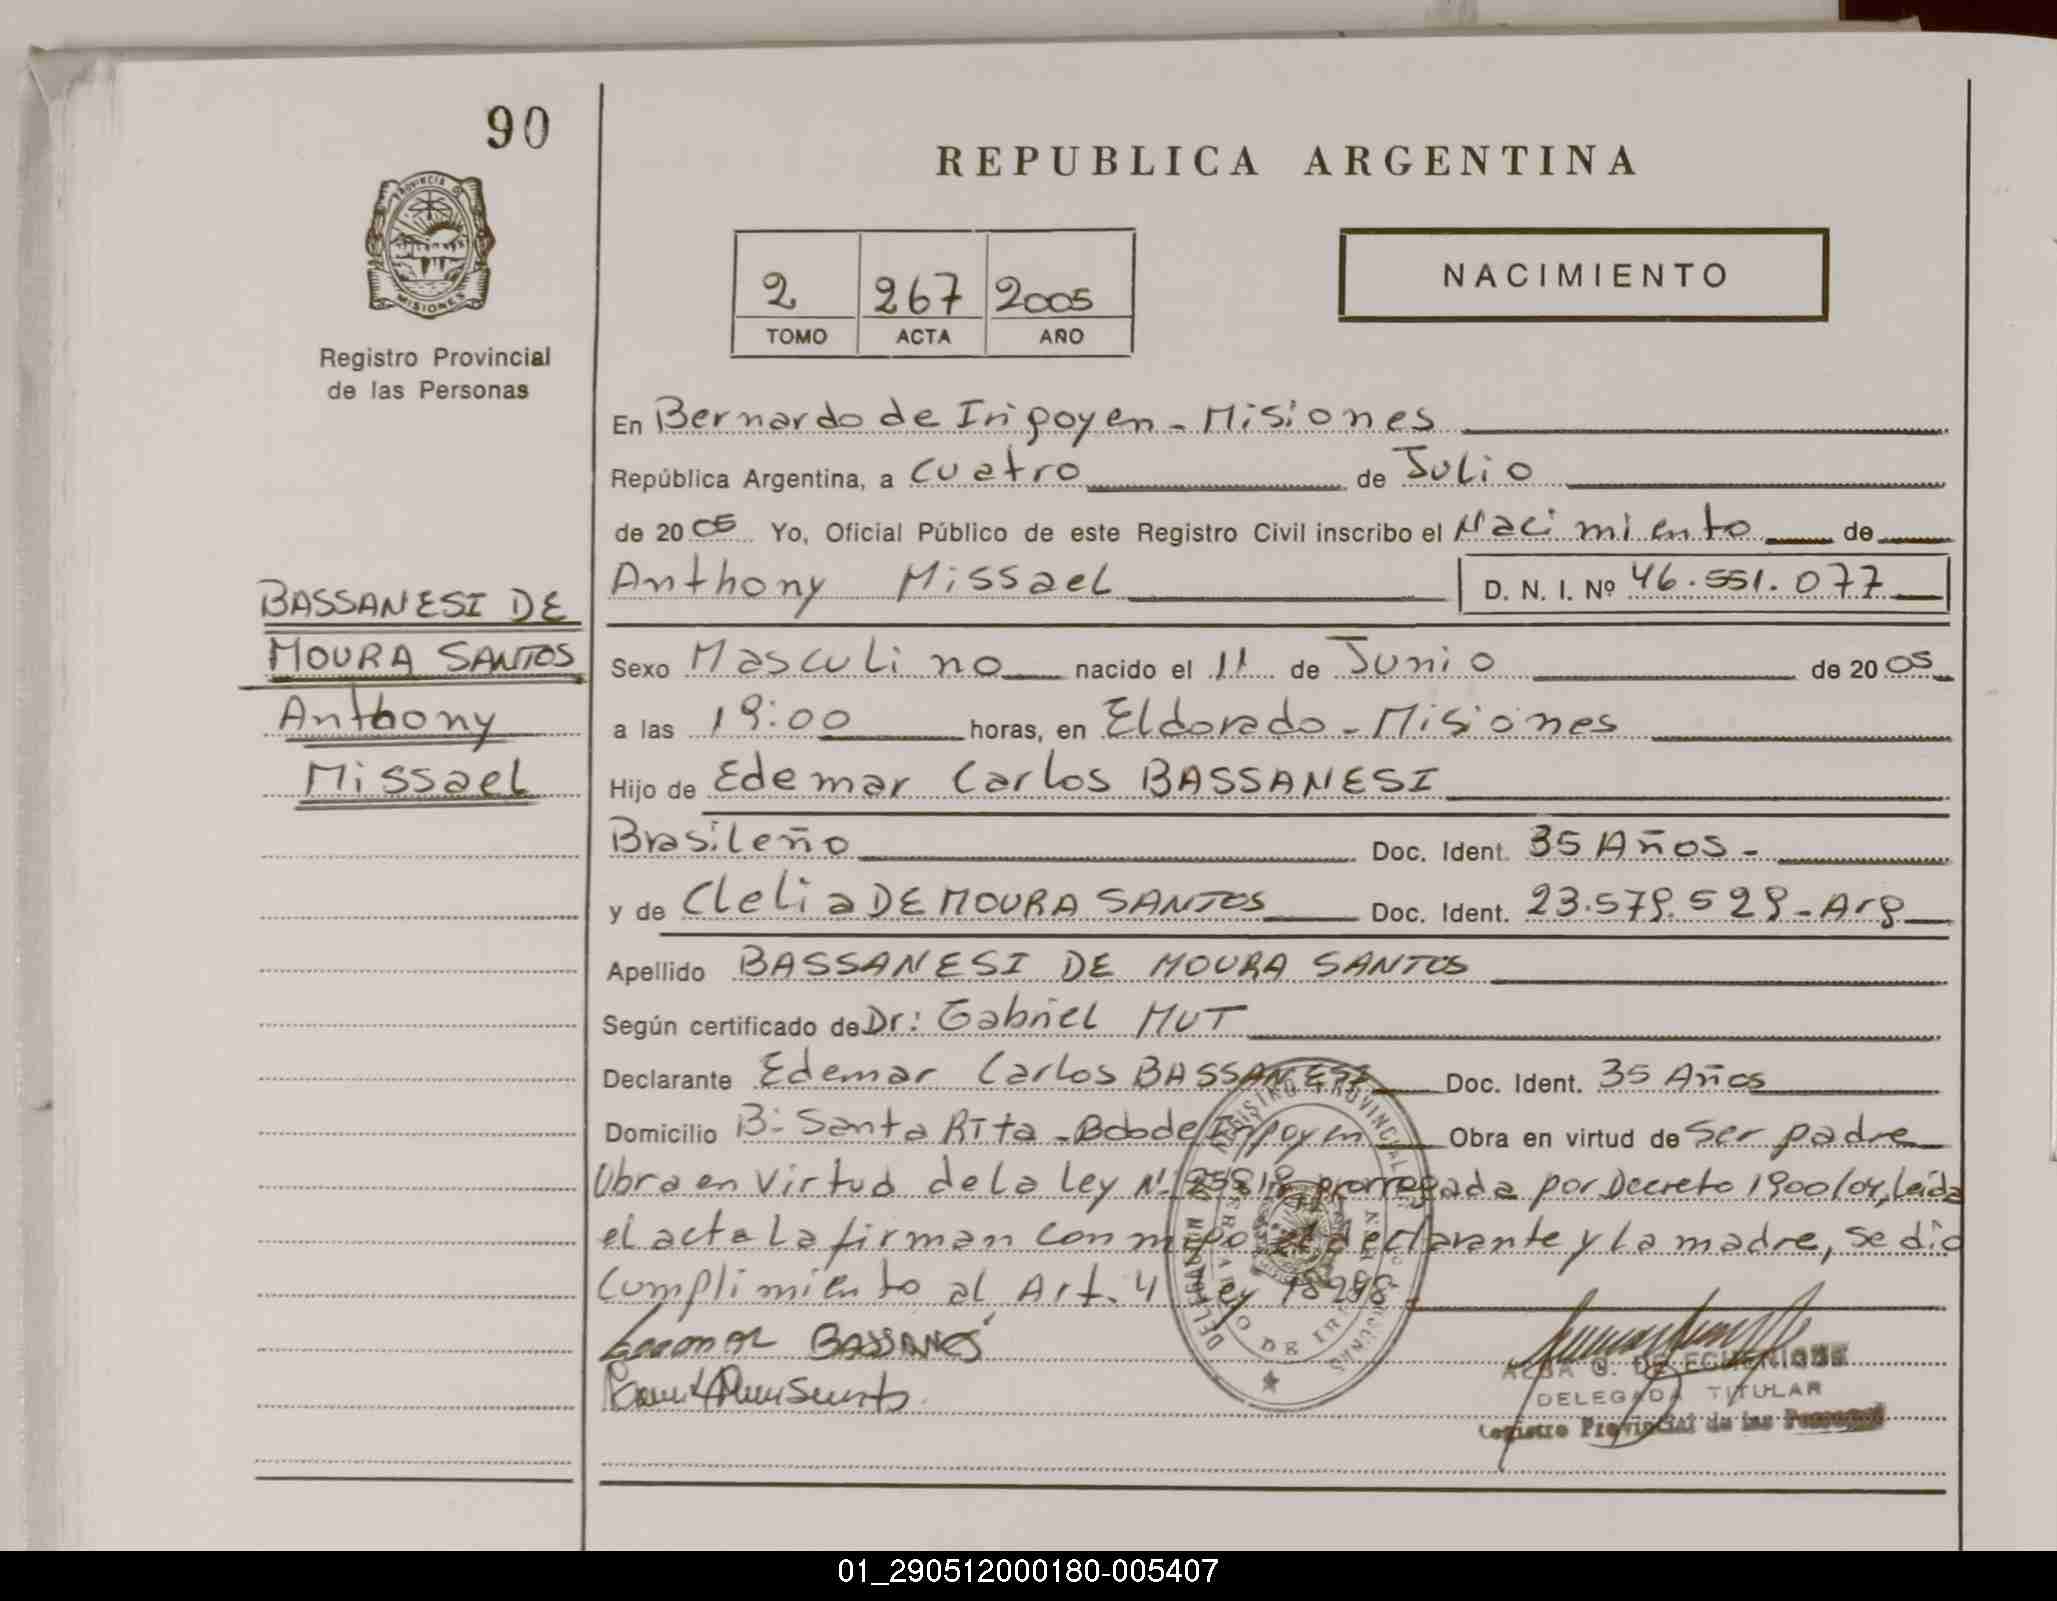 90
PROVINCIA DE
MISIONES
Registro Provincial
de las Personas
REPUBLICA ARGENTINA
2 267 2005
TOMO ACTA AÑO
NACIMIENTO
En Bernardo de Irigoyen - Misiones
República Argentina, a cuatro de Julio
de 2005 Yo, Oficial Público de este Registro Civil inscribo el Nacimiento de
Anthony Missael D. N. I. Nº 46.551.077
BASSANESI DE
MOURA SANTOS
Anthony
Missael
Sexo Masculino nacido el 11 de Junio de 2005
a las 19:00 horas, en Eldorado - Misiones
Hijo de Edemar Carlos BASSANESI
Brasileño Doc. Ident. 35 Años -
y de Clelia DE MOURA SANTOS Doc. Ident. 23.579.529 - Arg
Apellido BASSANESI DE MOURA SANTOS
Según certificado de Dr: Gabriel MUT
Declarante Edemar Carlos BASSANESI Doc. Ident. 35 Años
Domicilio B: Santa Rita - Bdo de Irigoyen Obra en virtud de Ser padre
Obra en virtud de la Ley Nº 25819 prorrogada por Decreto 1900/04, leida
el acta la firman conmigo el declarante y la madre, se dio
cumplimiento al Art. 4 Ley 18248 -
BASSANESI
REGISTRO PROVINCIAL
DELEGADA TITULAR
Registro Provincial de las Personas
01_290512000180-005407